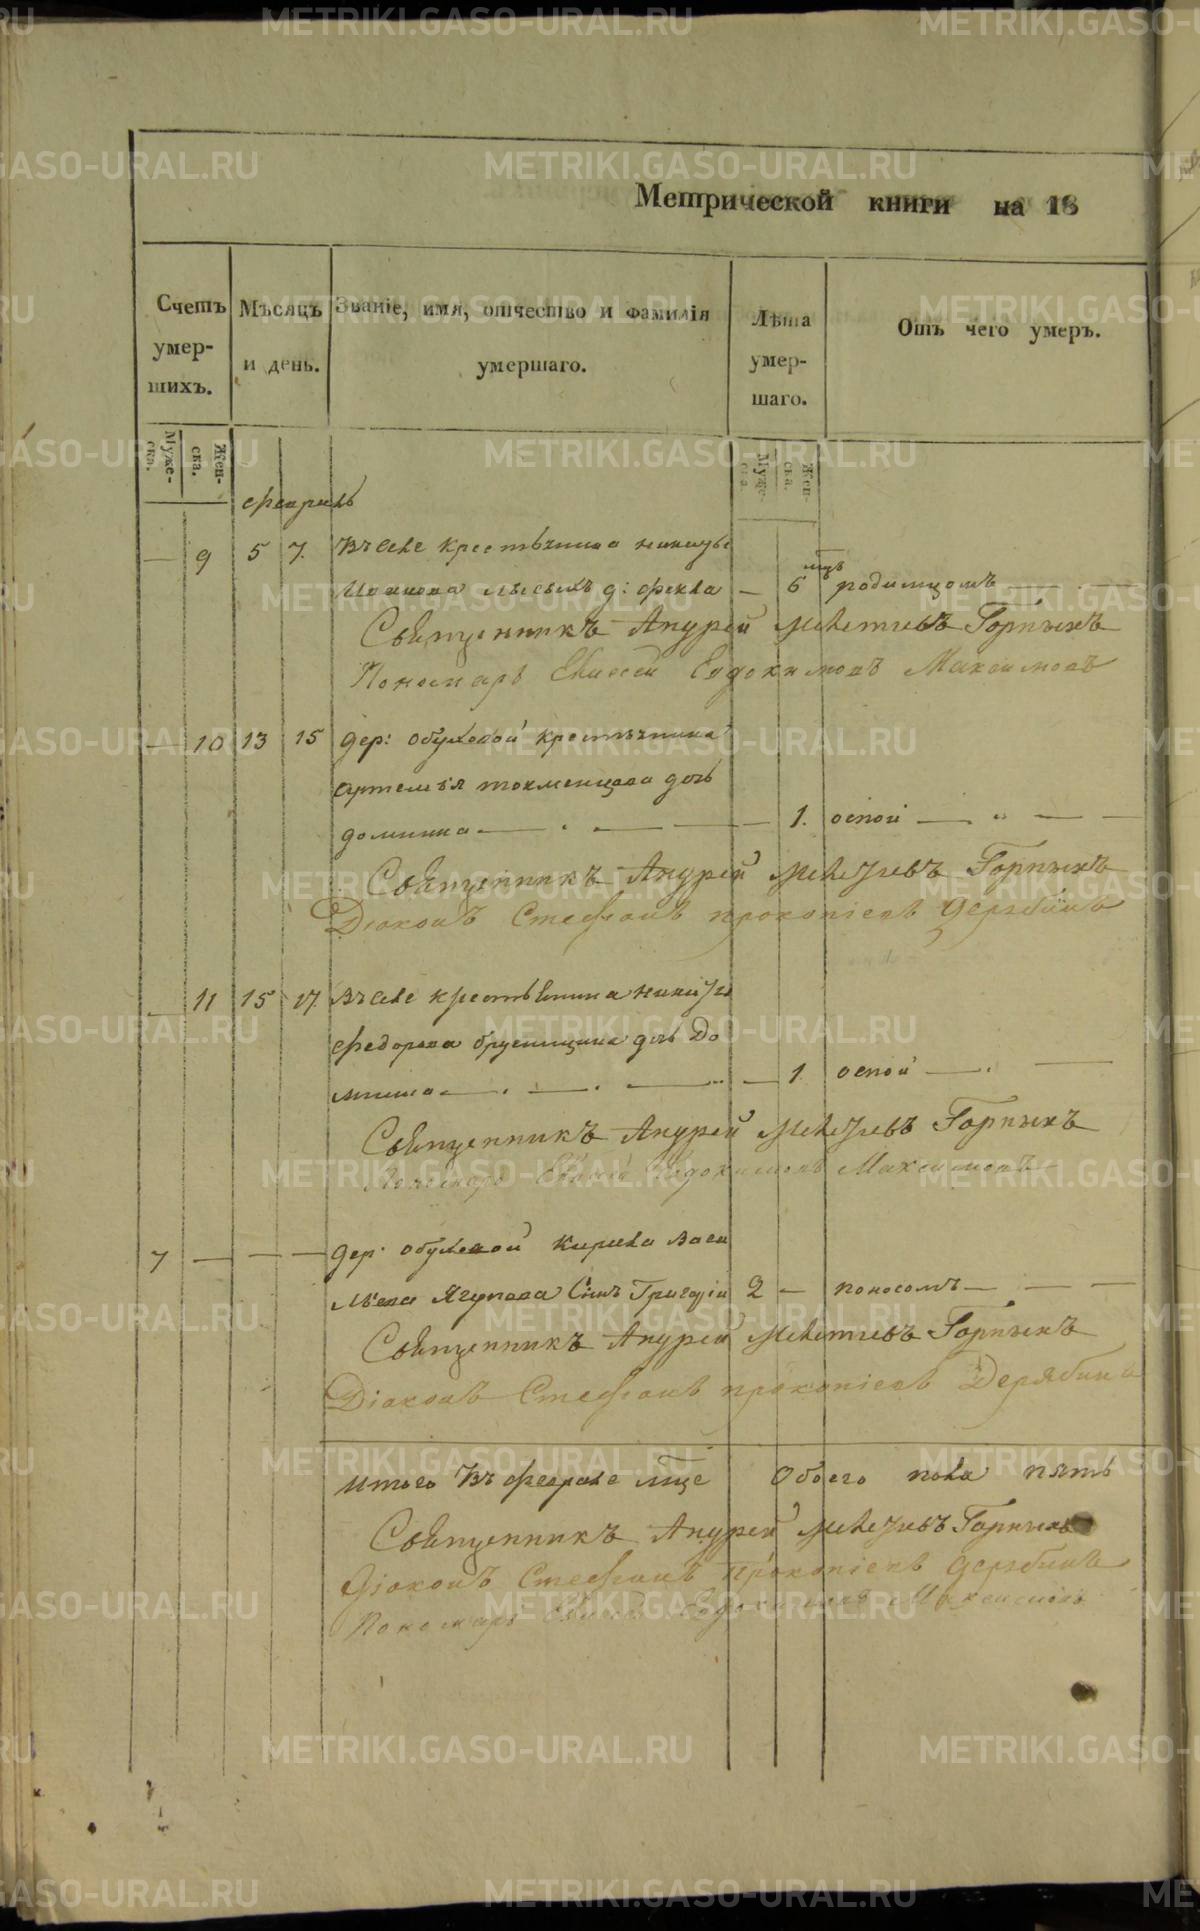 Метрической книги на 18
Счетъ умер- шихъ.
Мѣсяцъ и день.
Званіе, имя, отчество и фамилія умершаго.
Лѣта умер- шаго.
Отъ чего умеръ.
Муже- ска.
Жен- ска.
Муже- ска.
Жен- ска.
февраль
— 9 5 7. Въ селе крестьянина никиты
Иванова д: фекла — 6 мцъ родимцомъ —
Священникъ Андрей Мелетиевъ Горныхъ
Пономарь Елисей Евдокимовъ Максимовъ
— 10 13 15 дер: обуховой крестьянина
артемья токменцова дочь
домника — 1. оспой —
Священникъ Андрей Мелетиевъ Горныхъ
Діаконъ Стефанъ прокопіевъ дерябинъ
— 11 15 17. Въ селе крестьянина никиты
федорова брусницина дочь До
мника — 1 оспой —
Священникъ Андрей Мелетиевъ Горныхъ
Пономарь Елисей Евдокимовъ Максимовъ
7 — — — дер: обуховой Кирила Васи
льева Ягупова Сынъ Григорій 2 — поносомъ —
Священникъ Андрей Мелетиевъ Горныхъ
Діаконъ Стефанъ прокопіевъ Дерябинъ
итого Въ феврале мце Обоего пола пять
Священникъ Андрей Мелетиевъ Горныхъ
Діаконъ Стефанъ прокопіевъ дерябинъ
Пономарь Елисей Евдокимовъ Максимовъ
METRIKI.GASO-URAL.RU